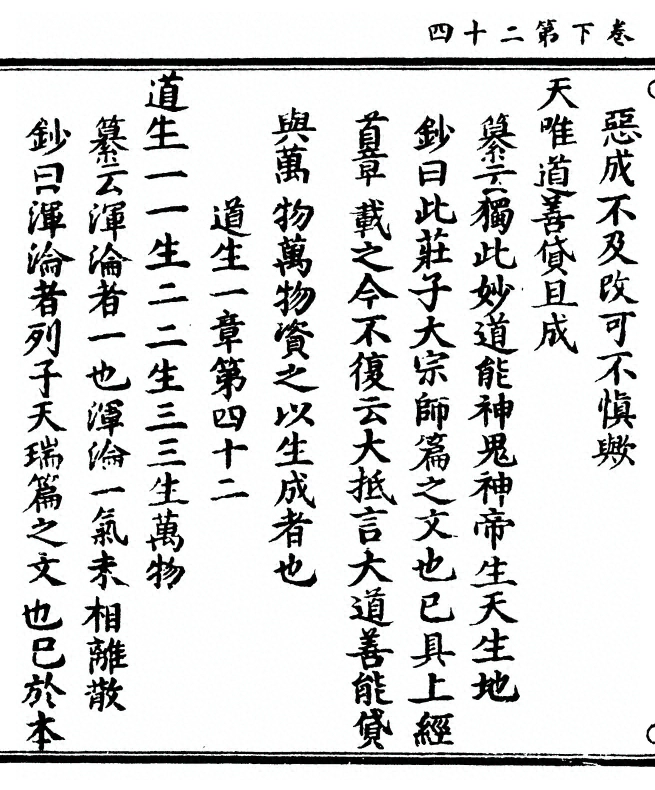 卷下第二十四
惡成不及改可不慎歟
天唯道善貸且成
纂云獨此妙道能神鬼神帝生天生地
鈔曰此莊子大宗師篇之文也已具上經
首章載之今不復云大抵言大道善能貸
與萬物萬物資之以生成者也
道生一章第四十二
道生一一生二二生三三生萬物
纂云渾淪者一也渾淪一氣未相離散
鈔曰渾淪者列子天瑞篇之文也已於本